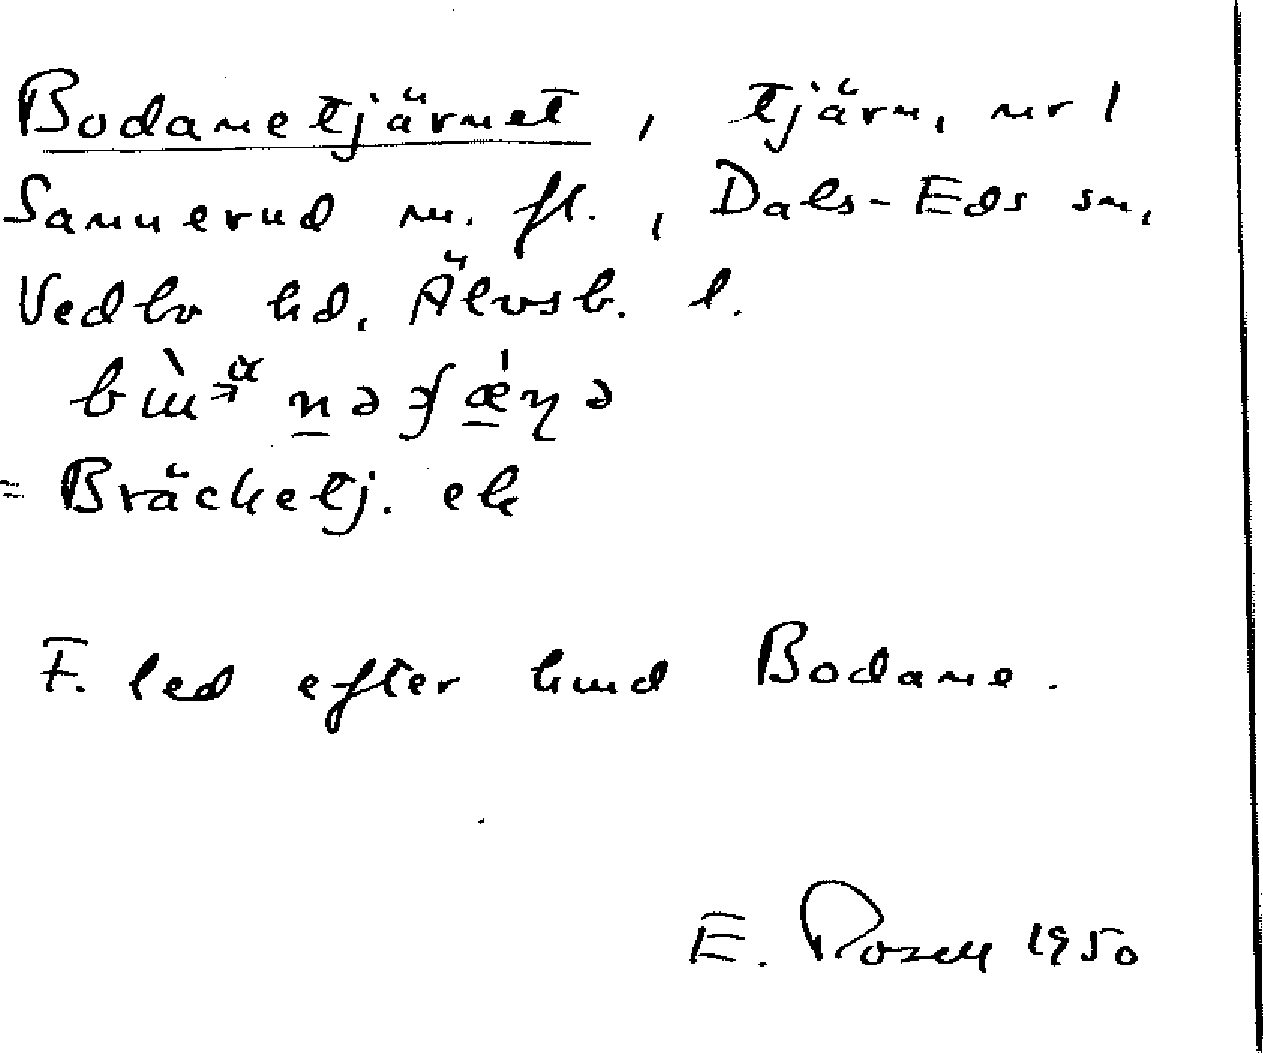 Bodanetjärnet, tjärn, nr 1
Sannerud m. fl., Dals-Eds sn,
Vedbo hd. Älvsb. l.
= Bräcketj. ek
F. led efter hmd Bodane.
E. Rosell 1950